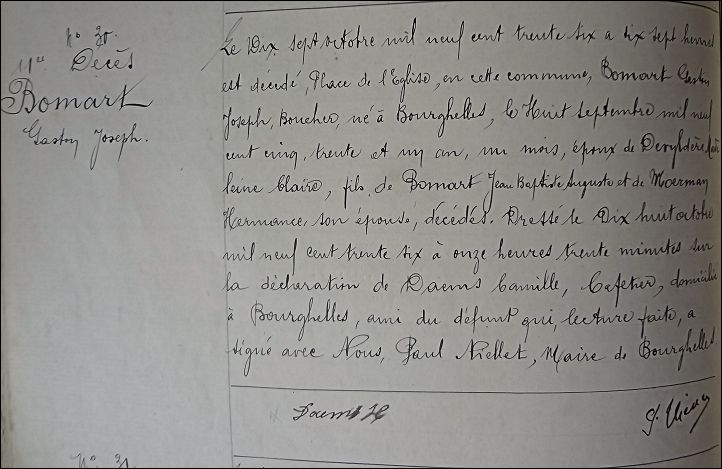 N° 30.
11me Décès
Bomart
Gaston Joseph.
Le Dix sept octobre mil neuf cent trente six a dix sept heures
est décédé, Place de l'Eglise, en cette commune, Bomart Gaston
Joseph, Boucher, né à Bourghelles, le Huit septembre mil neuf
cent cinq, trente et un an, un mois, époux de
leine Claire, fils de Bomart Jean Baptiste Auguste et de Moerman
Hermance, son épouse, décédés. Dressé le Dix huit octobre
mil neuf cent trente six à onze heures trente minutes sur
la déclaration de Daems Camille, Cafetier, domicilié
à Bourghelles, ami du défunt qui, lecture faite, a
signé avec Nous, Paul Niellet, Maire de Bourghelles
Daems
N° 31